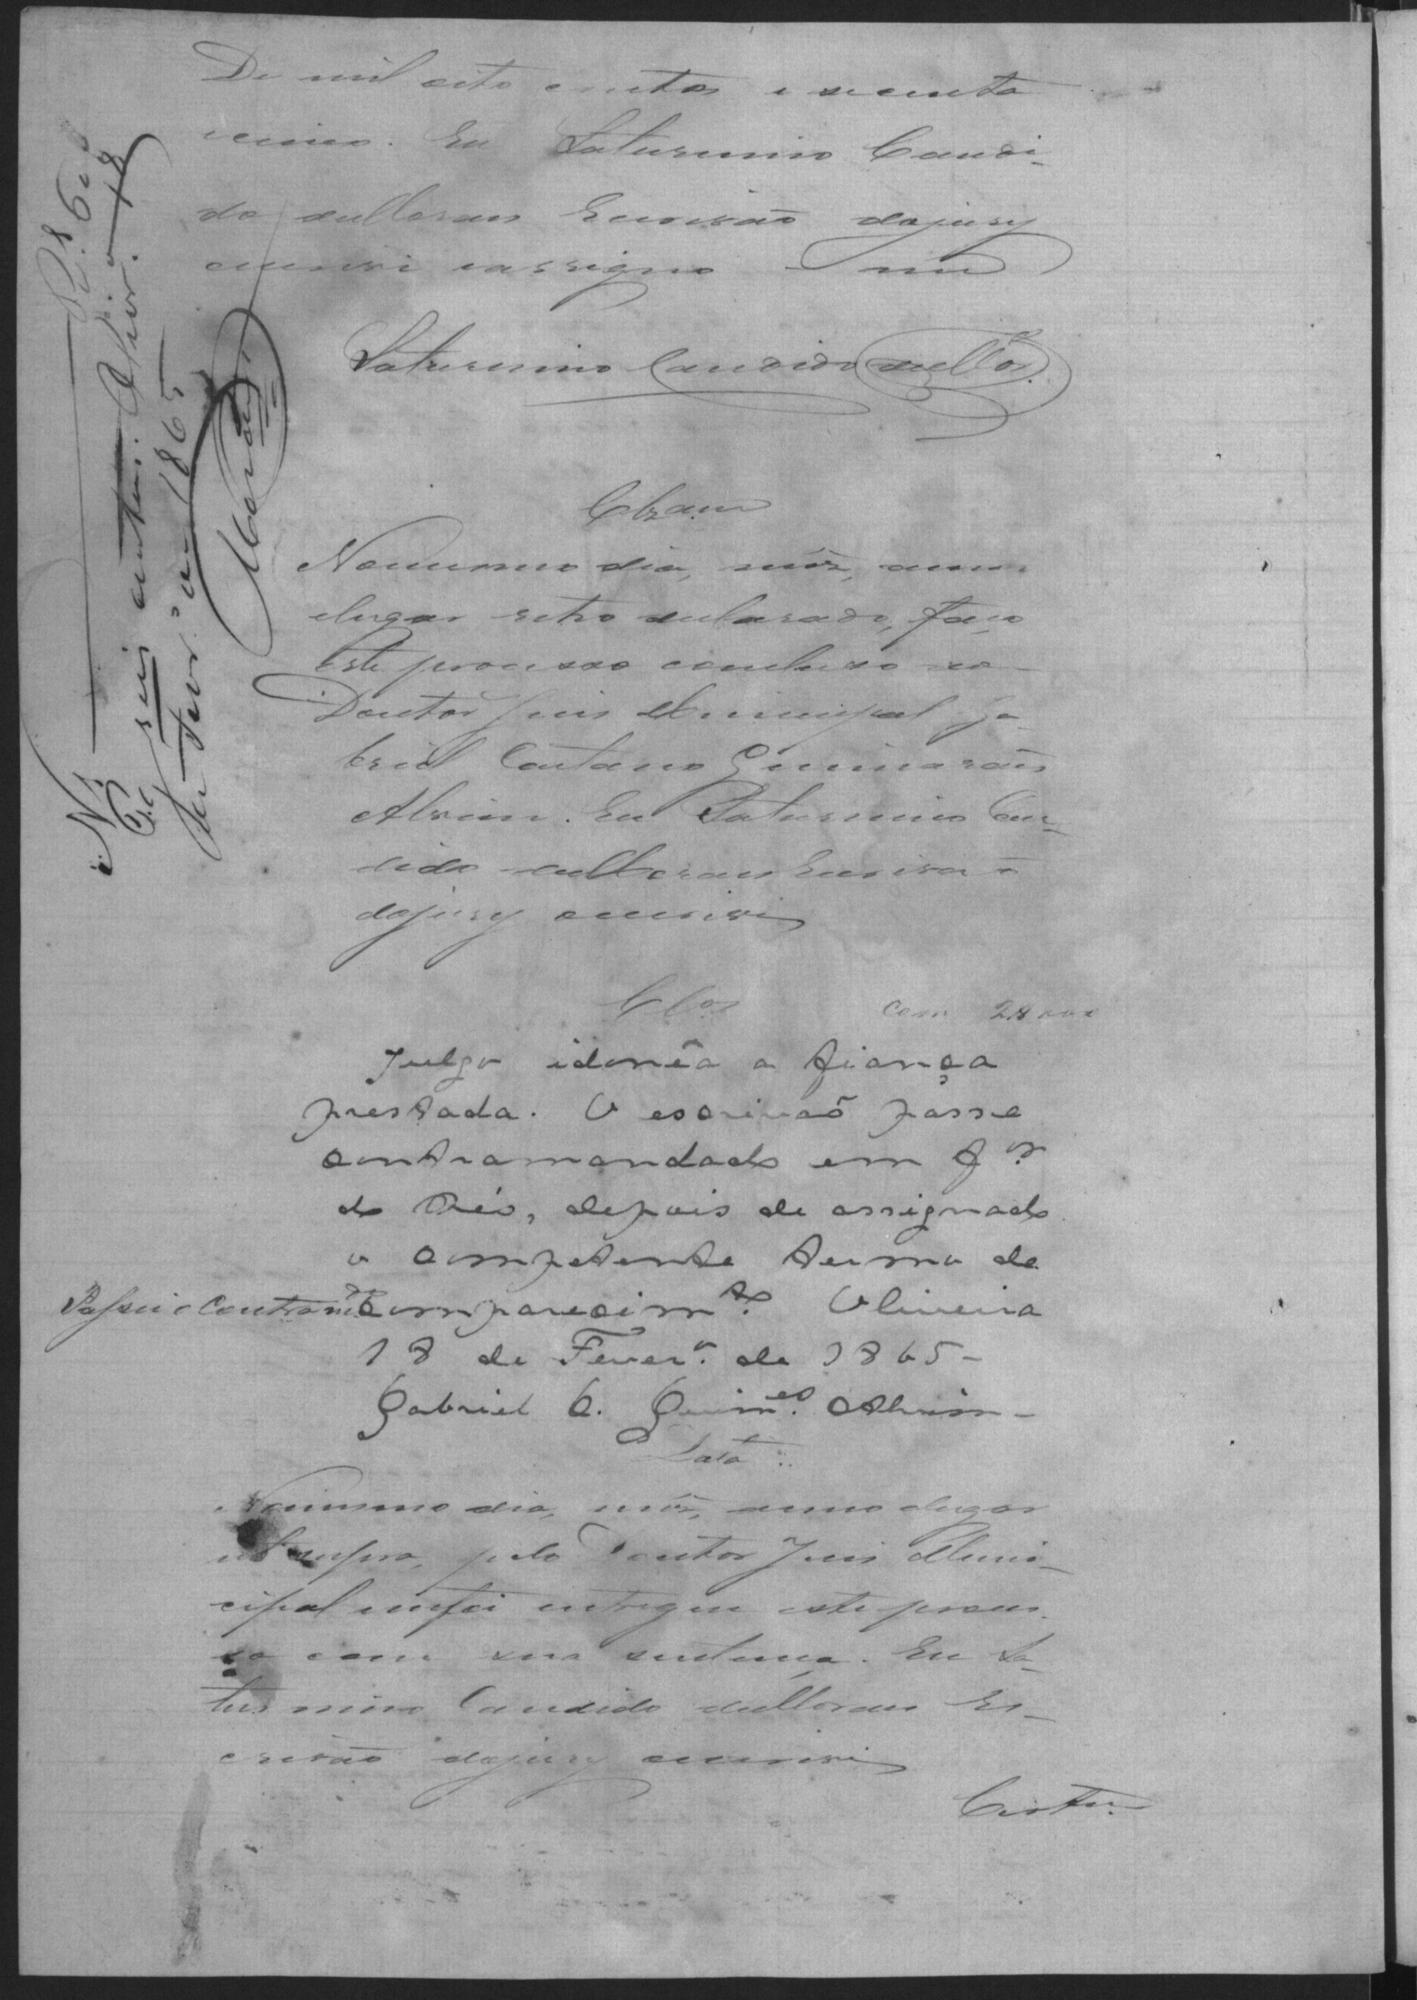 De mil oito centos e secenta
e cinco. Eu Saturnino Candi-
do de Escrivão do jury
escrivi e assigno
Saturnino Candido
Clzam
No mesmo dia, mês, anno
e lugar retro declarado, faço
este processo concluso ao
Doutor Juis Municipal Ga-
briel Caetano Guimarães
Alvim. Eu Saturnino Can-
dido Escrivão
do jury escrivi
Clos
Com 28
Julgo idonêa a fiança
prestada. O escrivaõ passe
contramandado em for.
do Réo, depois de assignado
o competente termo de
comparecimto. Oliveira
18 de Fevero. de 1865-
Gabriel C. Guimes. Alvim-
Passei o Contramdo
Data
No mesmo dia, mês, anno e lugar
ut supra, pelo Doutor Juis Muni-
cipal me foi entregue este proces-
so com sua sentença. Eu Sa-
turnino Candido Es-
crivão do jury escrivi
N. 1 Rs. 600
seis centos
de 1865